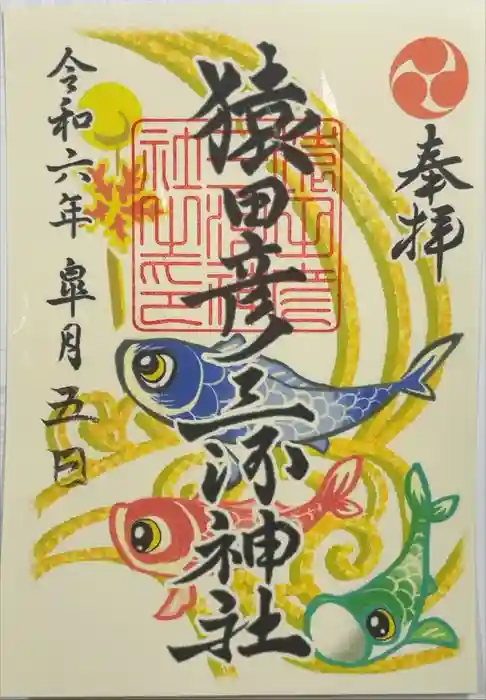 奉拝
猿田彦三河神社
令和六年 皐月五日